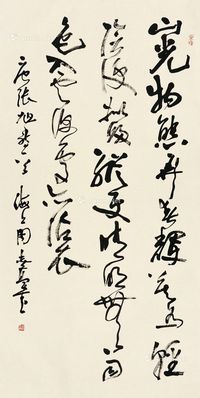 山光物態弄春輝莫為輕
陰便擬歸縱使晴明無雨
色入雲深處亦沾衣
唐張旭詩一首 海上周慧珺書